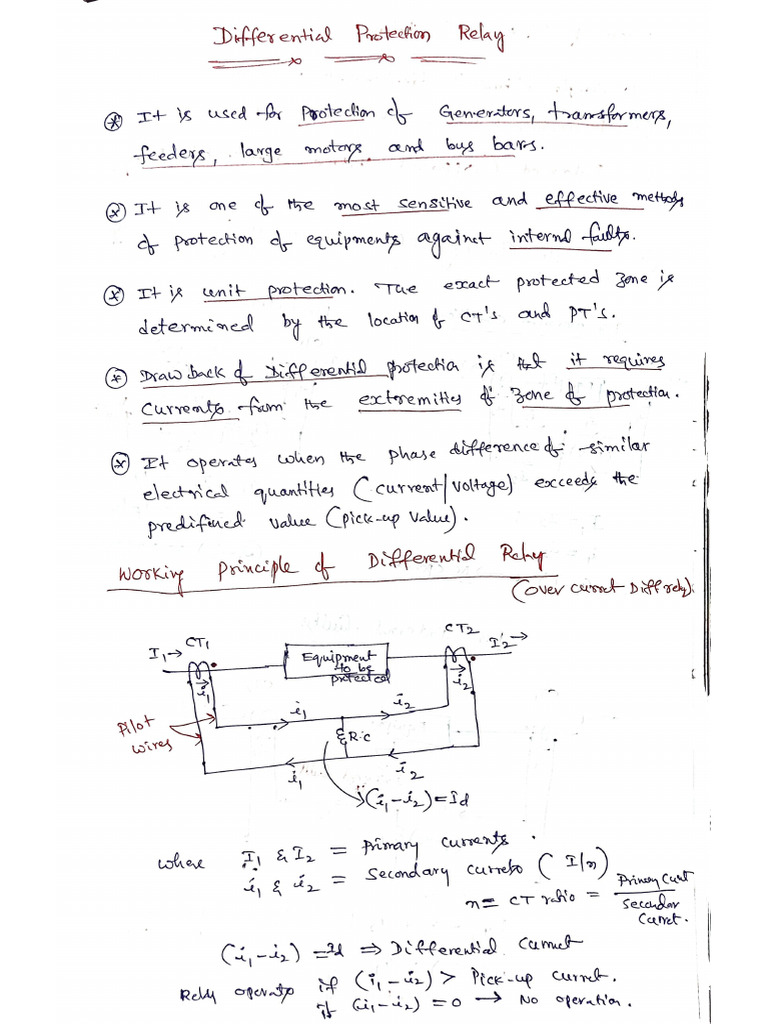 Differential Protection Relay
⊛ It is used for Protection of Generators, transformers,
feeders, large motors and bus bars.
⊛ It is one of the most sensitive and effective methods
of protection of equipments against internal faults.
⊛ It is unit protection. The exact protected zone is
determined by the location of CT's and PT's.
⊛ Drawback of Differential protection is that it requires
currents from the extremities of zone of protection.
⊛ It operates when the phase difference of similar
electrical quantities (current/voltage) exceeds the
predifined value (pick-up value).
Working Principle of Differential Relay
(over current Diff relay).
I1→ CT1 CT2 I2→
Equipment
to be
protected
i1 i2
i1 i2
Pilot
wires
R.C
i1 i2
(i1-i2)=Id
where I1 & I2 = primary currents
i1 & i2 = secondary currents (I/n)
n = CT ratio = Primary Curt
secondar
Curret.
(i1-i2) = Id ⇒ Differential Current
Relay operats if (i1-i2) > Pick-up curret.
if (i1-i2) = 0 → No operation.